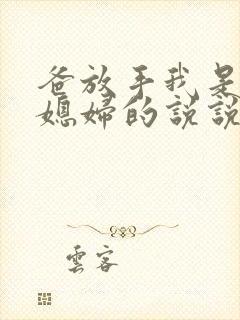 爸放手我是
媳婦的說說
雲客